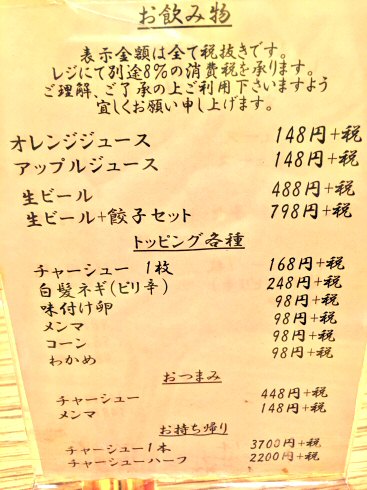 お飲み物
表示金額は全て税抜きです。
レジにて別途8%の消費税を承ります。
ご理解、ご了承の上ご利用下さいますよう
宜しくお願い申し上げます。
オレンジジュース 148円+税
アップルジュース 148円+税
生ビール 488円+税
生ビール+餃子セット 798円+税
トッピング各種
チャーシュー 1枚 168円+税
白髪ネギ(ピリ辛) 248円+税
味付け卵 98円+税
メンマ 98円+税
コーン 98円+税
わかめ 98円+税
おつまみ
チャーシュー 448円+税
メンマ 148円+税
お持ち帰り
チャーシュー1本 3700円+税
チャーシューハーフ 2200円+税